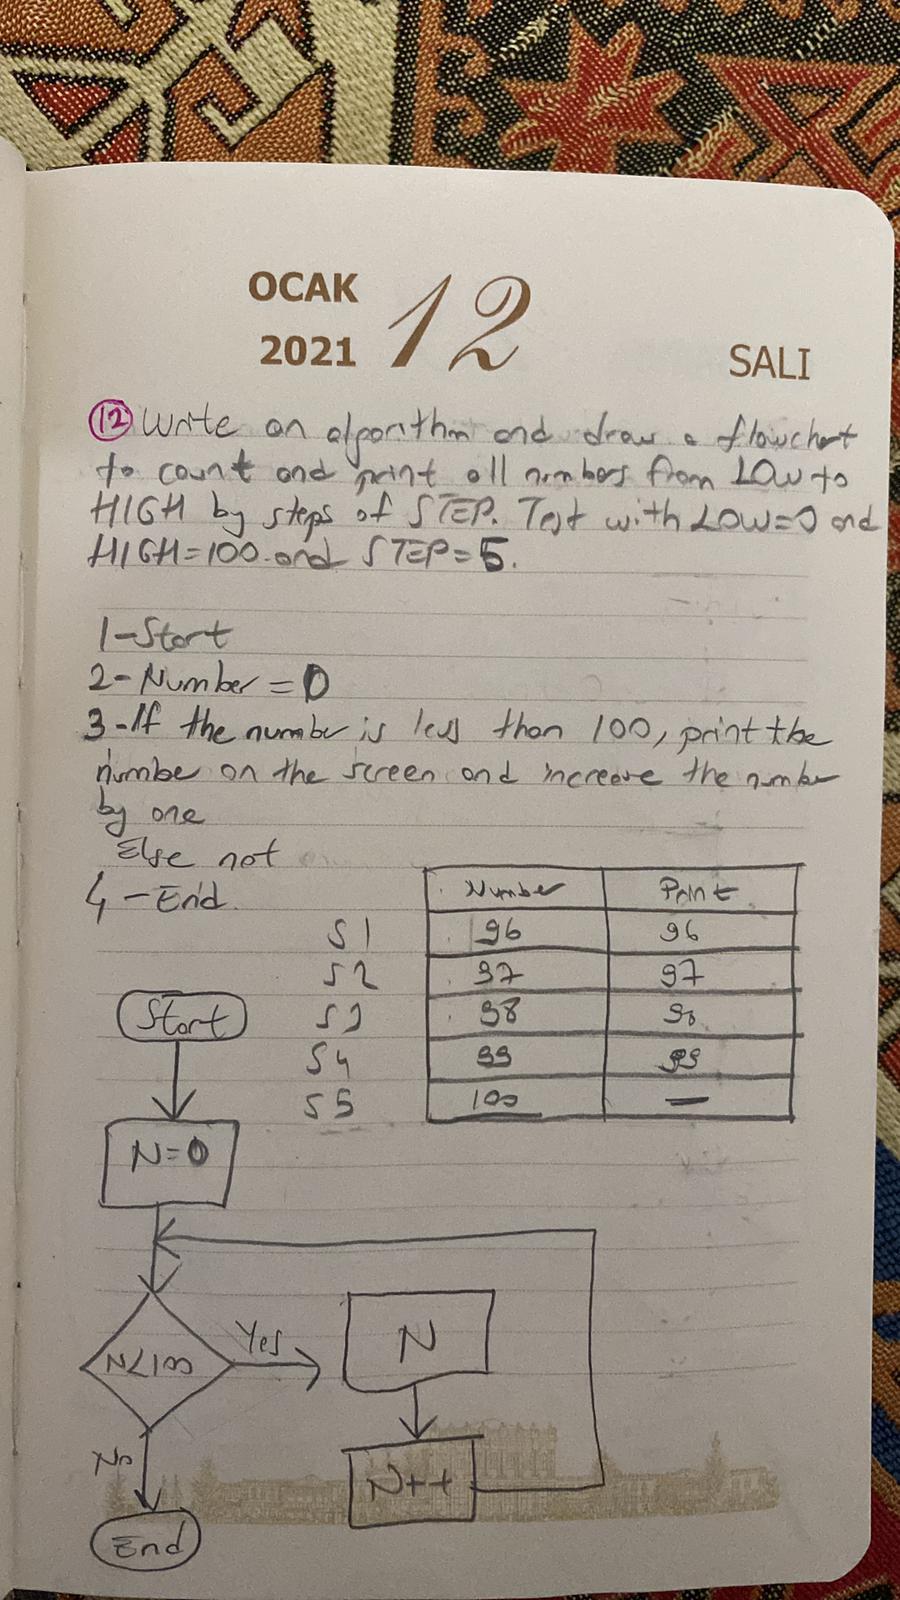 OCAK
2021
12
SALI
12 Write an algorithm and draw a flowchart
to count and print all numbers from LOW to
HIGH by steps of STEP. Test with LOW=0 and
HIGH=100 and STEP=5.
1-Start
2-Number=0
3-If the number is less than 100, print the
number on the screen and increase the number
by one
Else not
4-End.
Number Print
S1 96 96
S2 97 97
S3 98 98
S4 99 99
S5 100 —
Start
N=0
N<100
Yes
N
No
N++
End